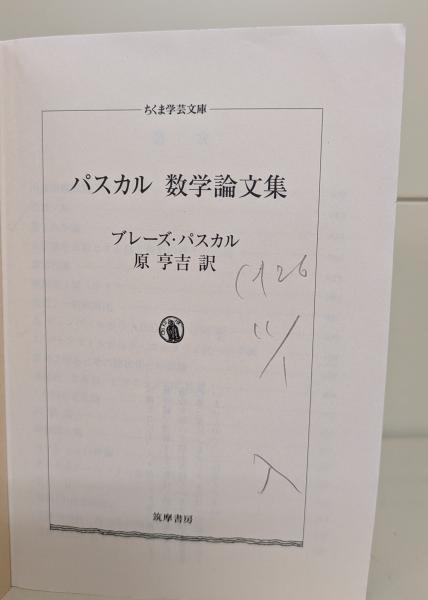 ちくま学芸文庫
パスカル 数学論文集
ブレーズ・パスカル
原 亨吉 訳
筑摩書房